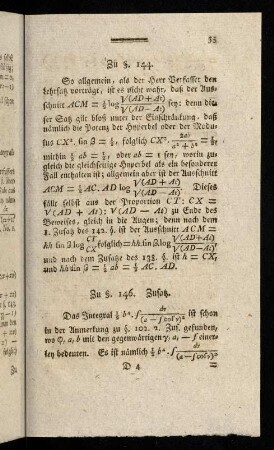 55
Zu §. 144.
So allgemein, als der Herr Verfasser den
Lehrsatz vorträgt, ist es nicht wahr, daß der Aus-
schnitt ACM = ½ log V(AD+At)/V(AD−At) sey: denn die-
ser Satz gilt bloß unter der Einschränkung, daß
nämlich die Potenz der Hyperbel oder der Modu-
lus CX². sin ß = ½, folglich CX². 2ab/(a²+b²) = ½
mithin ½ ab = ½, oder ab = 1 sey, worin zu-
gleich die gleichseitige Hyperbel als ein besonderer
Fall enthalten ist; allgemein aber ist der Ausschnitt
ACM = ½ AC. AD log V(AD+At)/V(AD−At). Dieses
fällt selbst aus der Proportion CT: CX =
V(AD + At): V(AD − At) zu Ende des
Beweises, gleich in die Augen; denn nach dem
1. Zusatz des 142. §. ist der Ausschnitt ACM =
hh sin ß log CT/CX folglich = hh sin ß log V(AD+At)/V(AD−At)
und nach dem Zusatze des 138. §. ist h = CX,
und hh sin ß = ½ ab = ½ AC. AD.
Zu §. 146. Zusatz.
Das Integral ½ b⁴. ∫ dv/(a − ∫ cos v)² ist schon
in der Anmerkung zu §. 102. 2. Zus. gefunden,
wo φ, a, b mit den gegenwärtigen
bedeuten. Es ist nämlich ½ b⁴. ∫ dv/(a − ∫ cos v)²
D 4 =